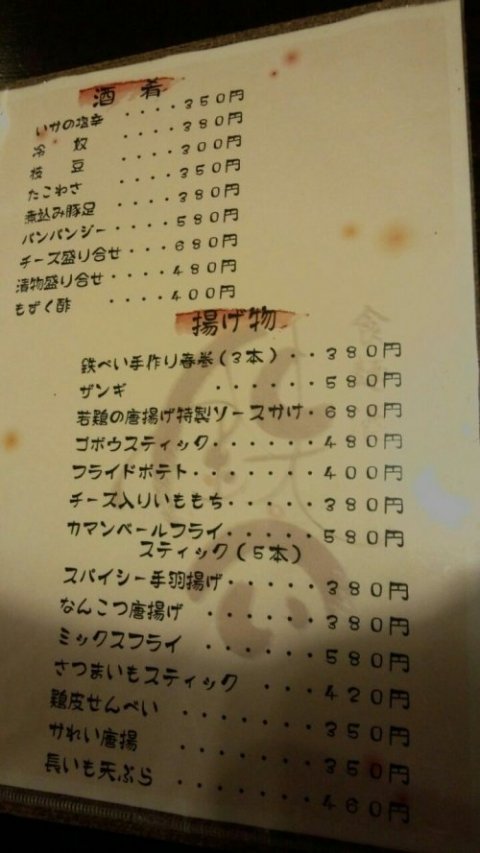 酒肴
いかの塩辛・・・・350円
冷奴・・・・380円
枝豆・・・・300円
たこわさ・・・・350円
煮込み豚足・・・・380円
バンバンジー・・・・580円
チーズ盛り合せ・・・・680円
漬物盛り合せ・・・・480円
もずく酢・・・・400円
揚げ物
鉄ぺい手作り春巻(3本)・・380円
ザンギ・・・・・・580円
若鶏の唐揚げ特製ソースかけ・680円
ゴボウスティック・・・・・・480円
フライドポテト・・・・・・・400円
チーズ入りいももち・・・・・380円
カマンベールフライ・・・・・580円
スティック(5本)
スパイシー手羽揚げ・・・・・380円
なんこつ唐揚げ・・・・・・380円
ミックスフライ・・・・・・580円
さつまいもスティック・・・420円
鶏皮せんべい・・・・・・・350円
かれい唐揚・・・・・・・350円
長いも天ぷら・・・・・・・460円